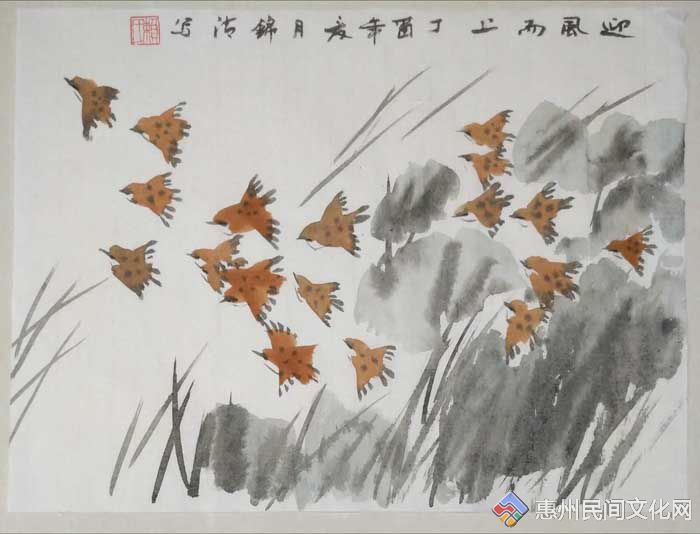 迎風而上 丁酉年夏月錦写
惠州民间文化网